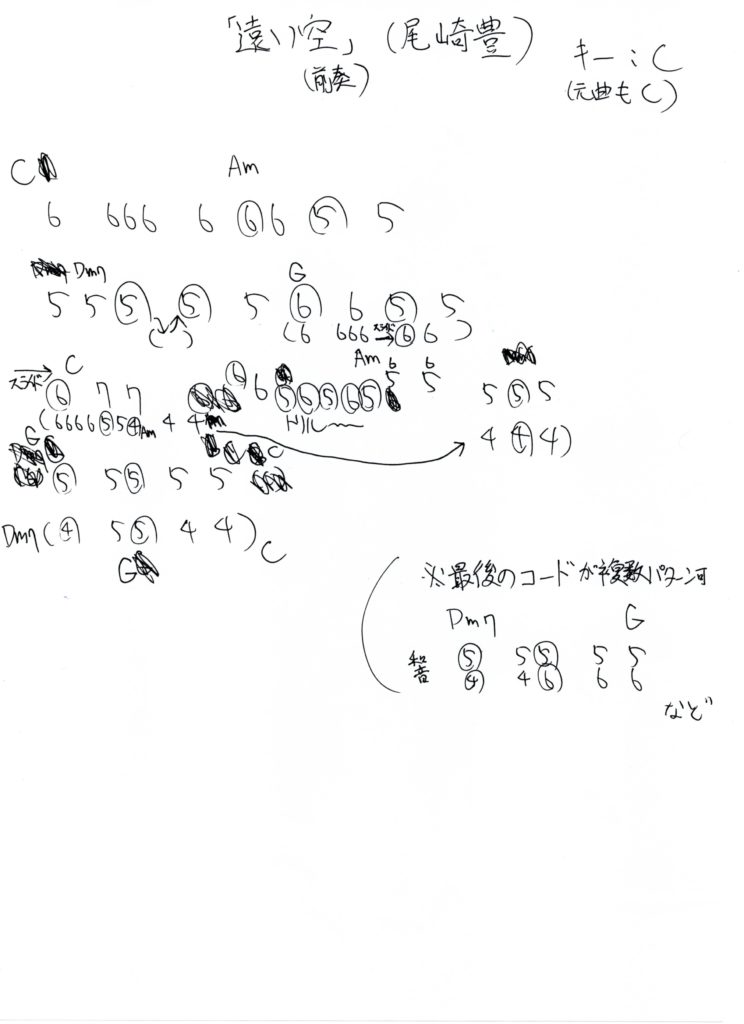 「遠い空」(尾崎豊)
(前奏)
キー:C
(元曲もC)
C Am
6 666 6 ⑥6 ⑤ 5
Dm7 G
5 5 ⑤ ⑤ 5 ⑥ 6 ⑤ 5
( ) (6 666 スライド→ ⑥ 6 )
スライド→ C Am
⑥ 7 7 ⑥ 6 ⑤⑥⑤⑥⑤ 5 5
6 6
(6666⑤5④ Am 4 4
トリル〜
5 ⑤ 5
4 ④ 4)
G C
⑤ 5⑤ 5 5
Dm7 (④ 5⑤ 4 4) C
G
※最後のコードが複数パターン可
Dm7 G
和音 ⑤ 5⑤ 5 5
④ 4⑥ 6 6
など